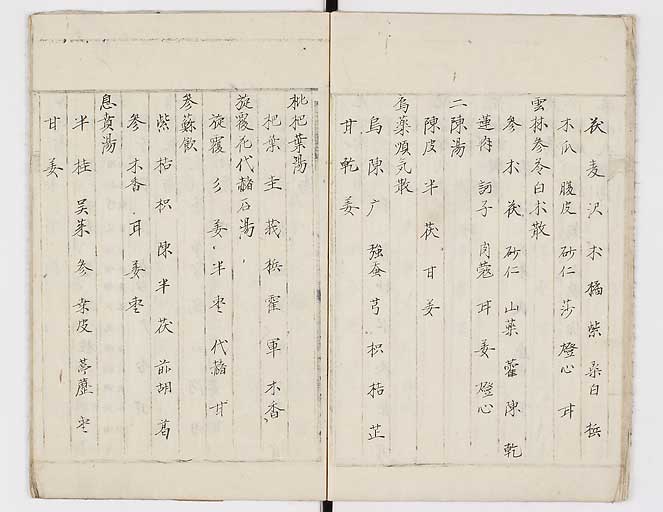 茯 麦 沢 朮 橘 紫 桑白 梹
木瓜 腹皮 砂仁 莎 燈心 甘
雲林参苓白朮散
参 朮 茯 砂仁 山薬 藿 陳 乾
蓮肉 訶子 肉蔻 甘 姜 燈心
二陳湯
陳皮 半 茯 甘 姜
烏薬順気散
烏 陳 广 殭蚕 芎 枳 桔 芷
甘 乾 姜
枇杷葉湯
杷葉 圭 莪 梹 霍 軍 木香
旋覆花代赭石湯
旋覆 彡 姜 半 枣 代赭 甘
参蘇飲
紫 桔 枳 陳 半 茯 前胡 葛
参 木香 甘 姜 枣
息賁湯
半 桂 吴茱 参 桒皮 葶藶 枣
甘 姜